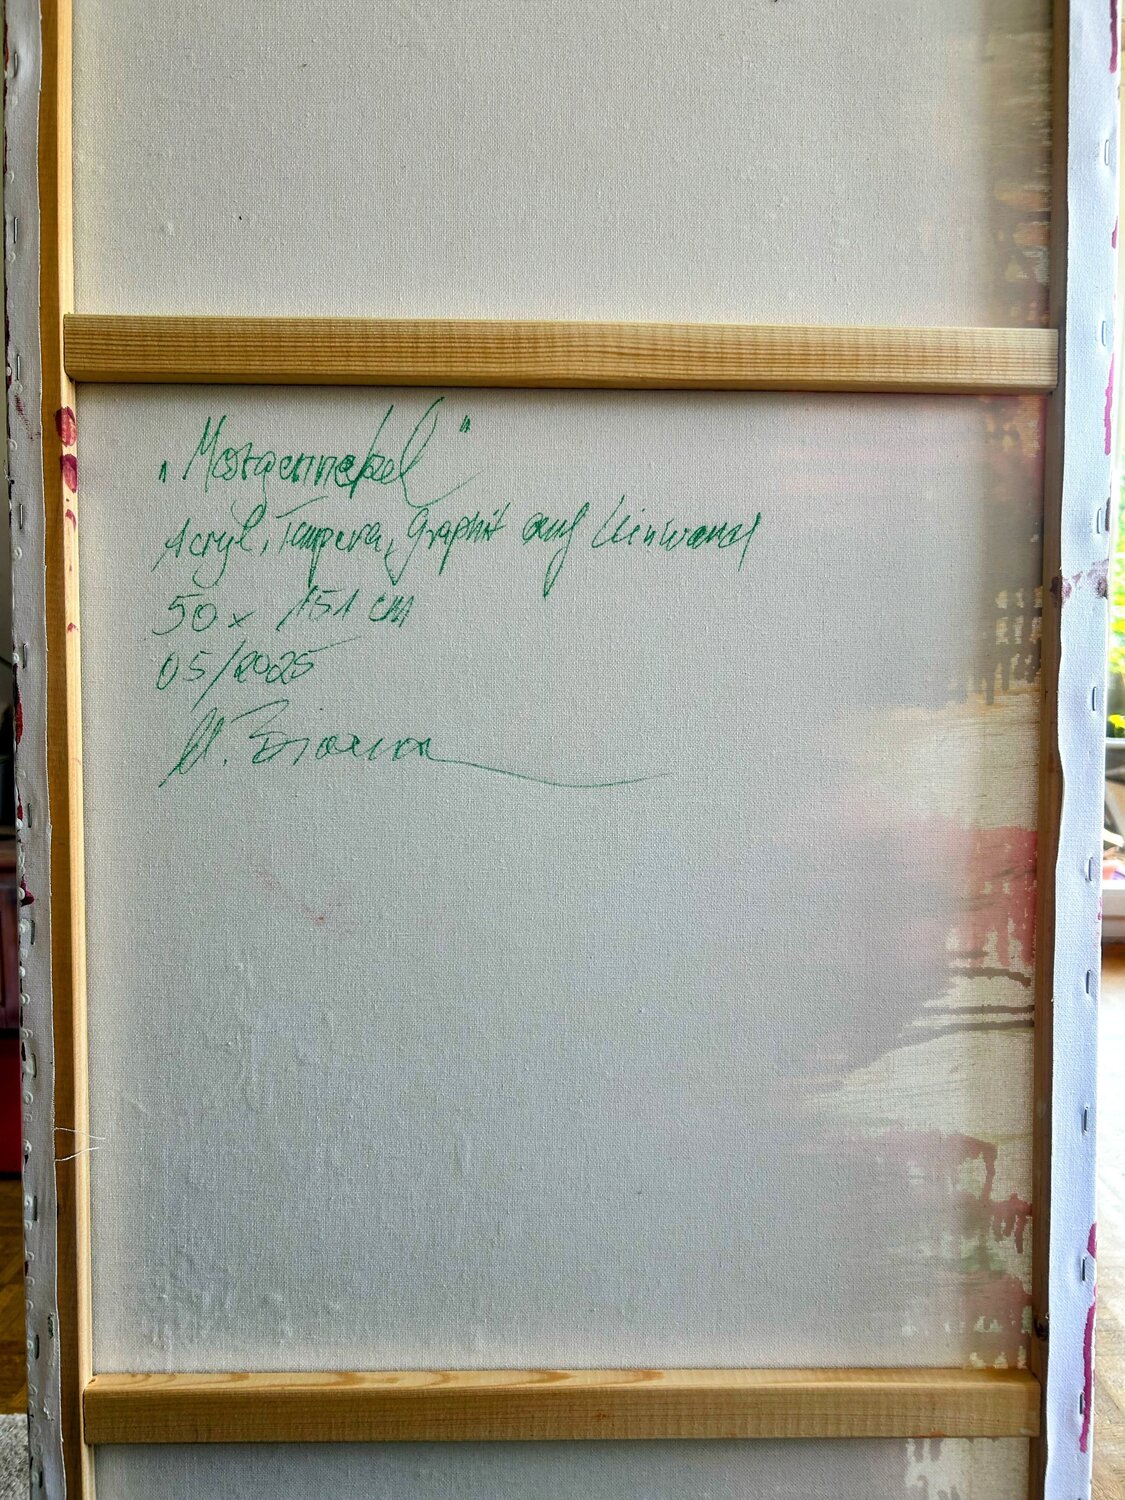 „Morgennebel“
Acryl, Tempera, Graphit auf Leinwand
50 x 151 cm
05/2025